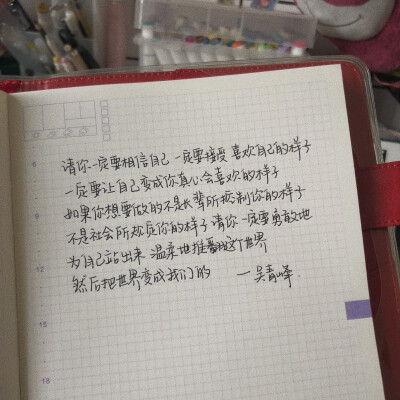 请你一定要相信自己 一定要接受 喜欢自己的样子
一定要让自己变成你真心会喜欢的样子
如果你想要做的不是长辈所控制你的样子
不是社会所规定你的样子 请你一定要勇敢地
为自己站出来 温柔地推翻这个世界
然后把世界变成我们的 —吴青峰.
9
12
15
18